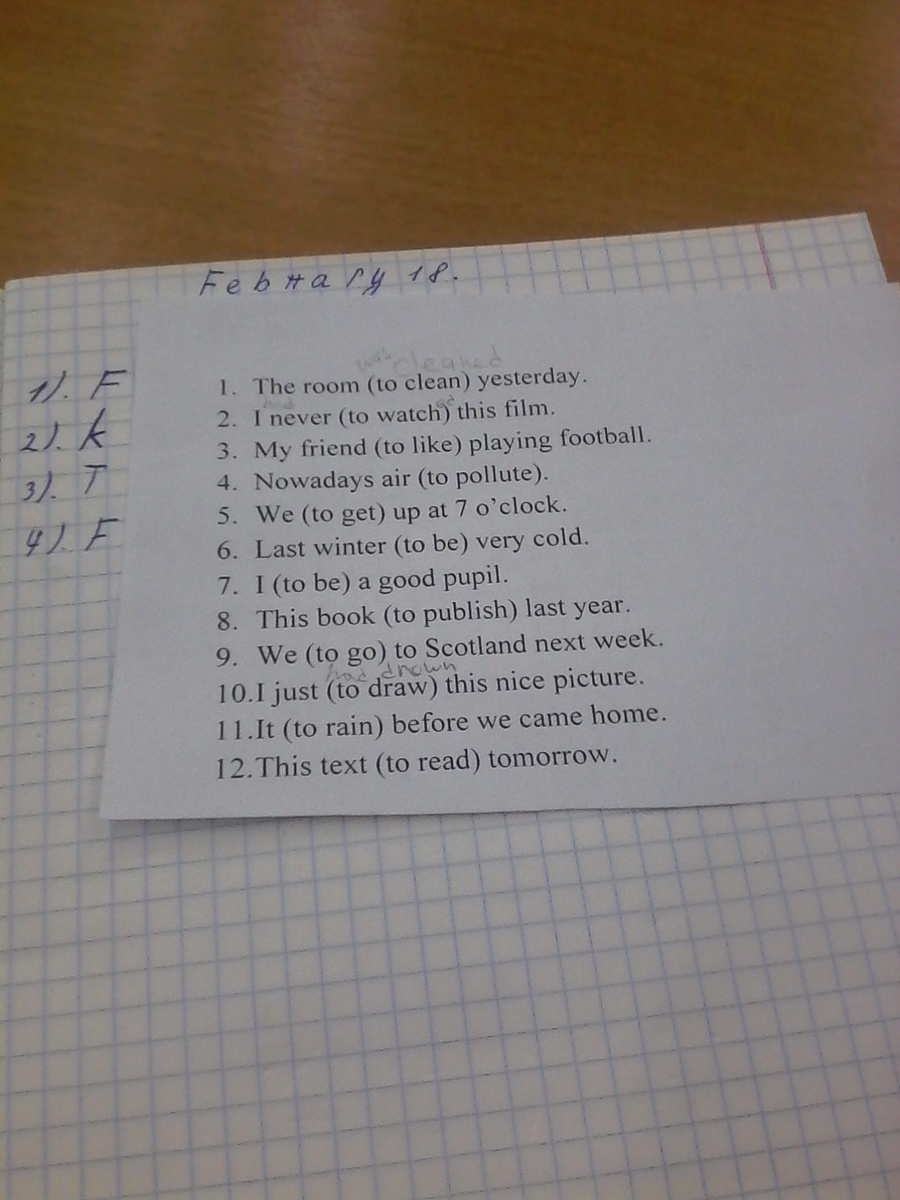 Febuary 18.
1). F
2). k
3). T
4). F
was cleaned
1. The room (to clean) yesterday.
2. I never (to watch) this film.
3. My friend (to like) playing football.
4. Nowadays air (to pollute).
5. We (to get) up at 7 o'clock.
6. Last winter (to be) very cold.
7. I (to be) a good pupil.
8. This book (to publish) last year.
9. We (to go) to Scotland next week.
had drown
10.I just (to draw) this nice picture.
11.It (to rain) before we came home.
12.This text (to read) tomorrow.